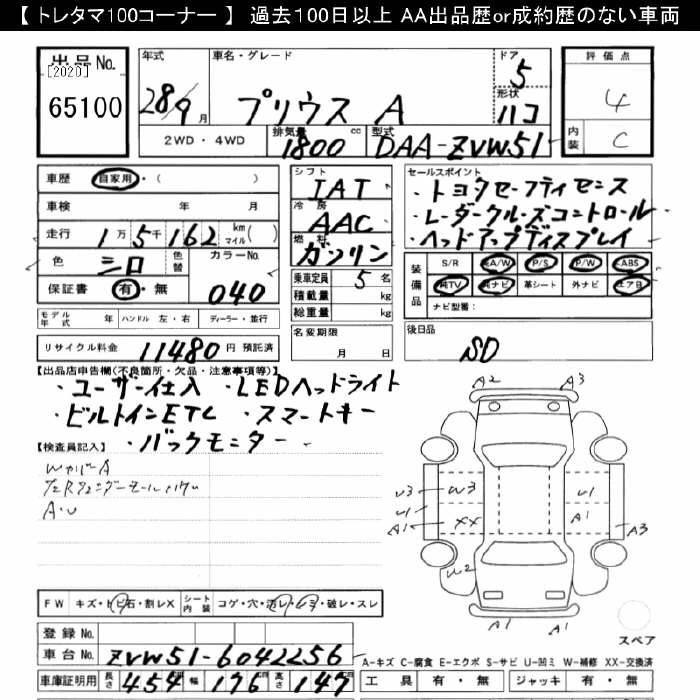 【 トレタマ100コーナー 】 過去100日以上 AA出品歴or成約歴のない車両
出品No.
[2020]
65100
年式 車名・グレード ドア 評価点
28/9月 プリウス A 5 4
形状 ハコ
2WD・4WD 排気量 1800 cc 型式 DAA-ZVW51 内装 C
車歴 自家用・( )
車検 年 月
走行 1万5千162 km マイル( )
色 シロ 色替 カラーNo. 040
保証書 有・無
モデル年式 年 ハンドル 左・右 ディーラー・並行
リサイクル料金 11480 円 預託済
シフト IAT
冷房 AAC
燃料 ガソリン
乗車定員 5 名
積載量 kg
総重量 kg
名変期限 月 日
セールスポイント
・トヨタセーフティセンス
・レーダークルーズコントロール
・ヘッドアップディスプレイ
装備品 S/R A/W P/S P/W ABS
純TV 純ナビ 革シート 外ナビ エアB
ナビ型番:
後日品
SD
【出品店申告欄(不良箇所・欠品・注意事項等)】
・ユーザー仕入 ・LEDヘッドライト
・ビルトインETC ・スマートキー
・バックモニター
【検査員記入】
WカバーA
A・U
A2 A3
U3 W3 U1
U1 A1 XX A1 A3
W2
A1 A1
スペア
FW キズ・トビ石・割レX シート内装 コゲ・穴・汚レ・シミ・破レ・スレ
登録No.
車台No. ZVW51-6042256
車庫証明用 長さ 454 幅 176 高さ 147
A-キズ C-腐食 E-エクボ S-サビ U-凹ミ W-補修 XX-交換済
工具 有・無 ジャッキ 有・無